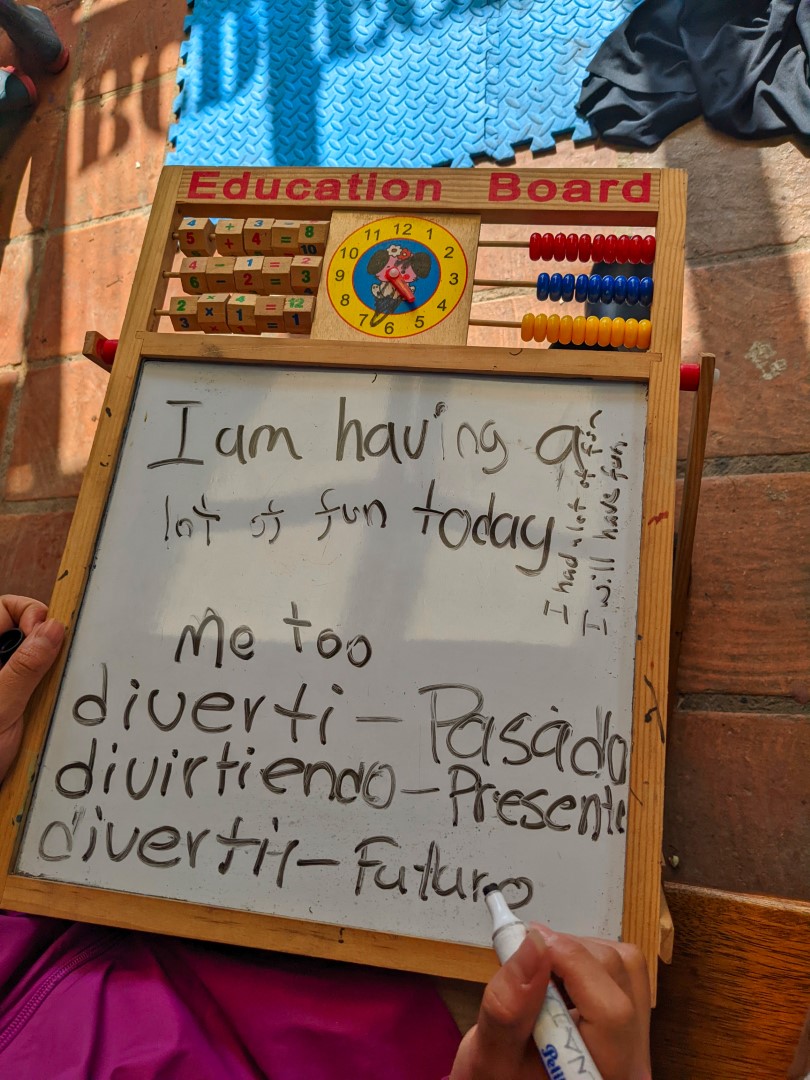 Education Board
5 + 3 4 = 8 10
4 6 - 1 2 = 2 3
2 3 × 1 4 = 12 1
12 1 2 3 4 5 6 7 8 9 10 11
I am having a
lot of fun today
I had a lot of fun
I will have fun.
Me too
diverti - Pasado
divirtiendo - Presente
divertir - Futuro